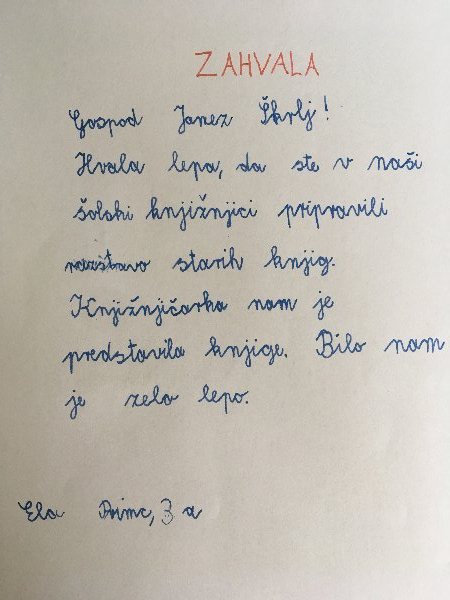 ZAHVALA
Gospod Janez Škrlj!
Hvala lepa, da ste v naši
šolski knjižnjici pripravili
razstavo starih knjig.
Knjižnjičarka nam je
predstavila knjige. Bilo nam
je zelo lepo.
Ela Primc, 3 a